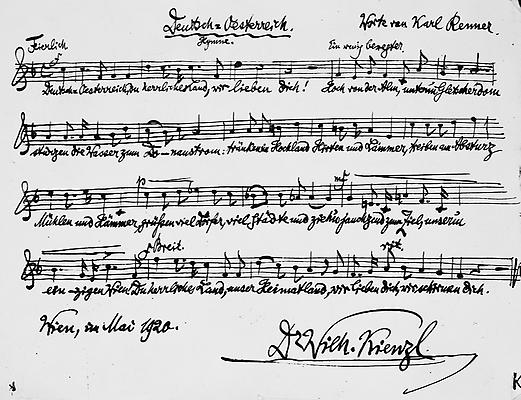 Deutsch=Oesterreich.
Hymne.
Worte von Karl Renner.
Feierlich
Ein wenig bewegter
Deutsch=Oesterreich, du herrliches Land, wir lieben dich! Hoch von der Alm, unterm Gletscherdom
stürzen die Wasser zum Do-naustrom: tränken im Hochland Hirten und Lämmer, treiben am Absturz
Mühlen und Hämmer, grüßen viel Dörfer, viel Städte und ziehn jauchzend zum Ziel, unserm
Breit.
rit.
ein-zigen Wien. Du herrliches Land, unser Heimatland, wir lieben dich, wir
dich.
Wien, im Mai 1920.
Dr. Wilh. Kienzl.
K